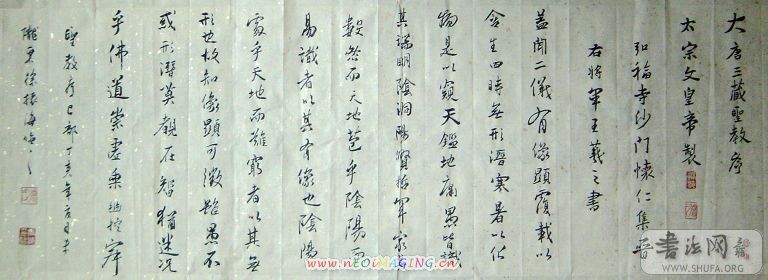 大唐三藏聖教序
太宗文皇帝製
弘福寺沙門懷仁集晉
右將軍王羲之書
蓋聞二儀有像顯覆載以
含生四時無形潛寒暑以化
物是以窺天鑑地庸愚皆識
其端明陰洞陽賢哲罕窮其
數然而天地苞乎陰陽而
易識者以其有像也陰陽
處乎天地而難窮者以其無
形也故知像顯可徵雖愚不
或形潛莫覩在智猶迷況
乎佛道崇虛乘幽控寂
聖教序
丁亥年
www.nEOiMAGING.cn
書法网
WWW.SHUFA.ORG